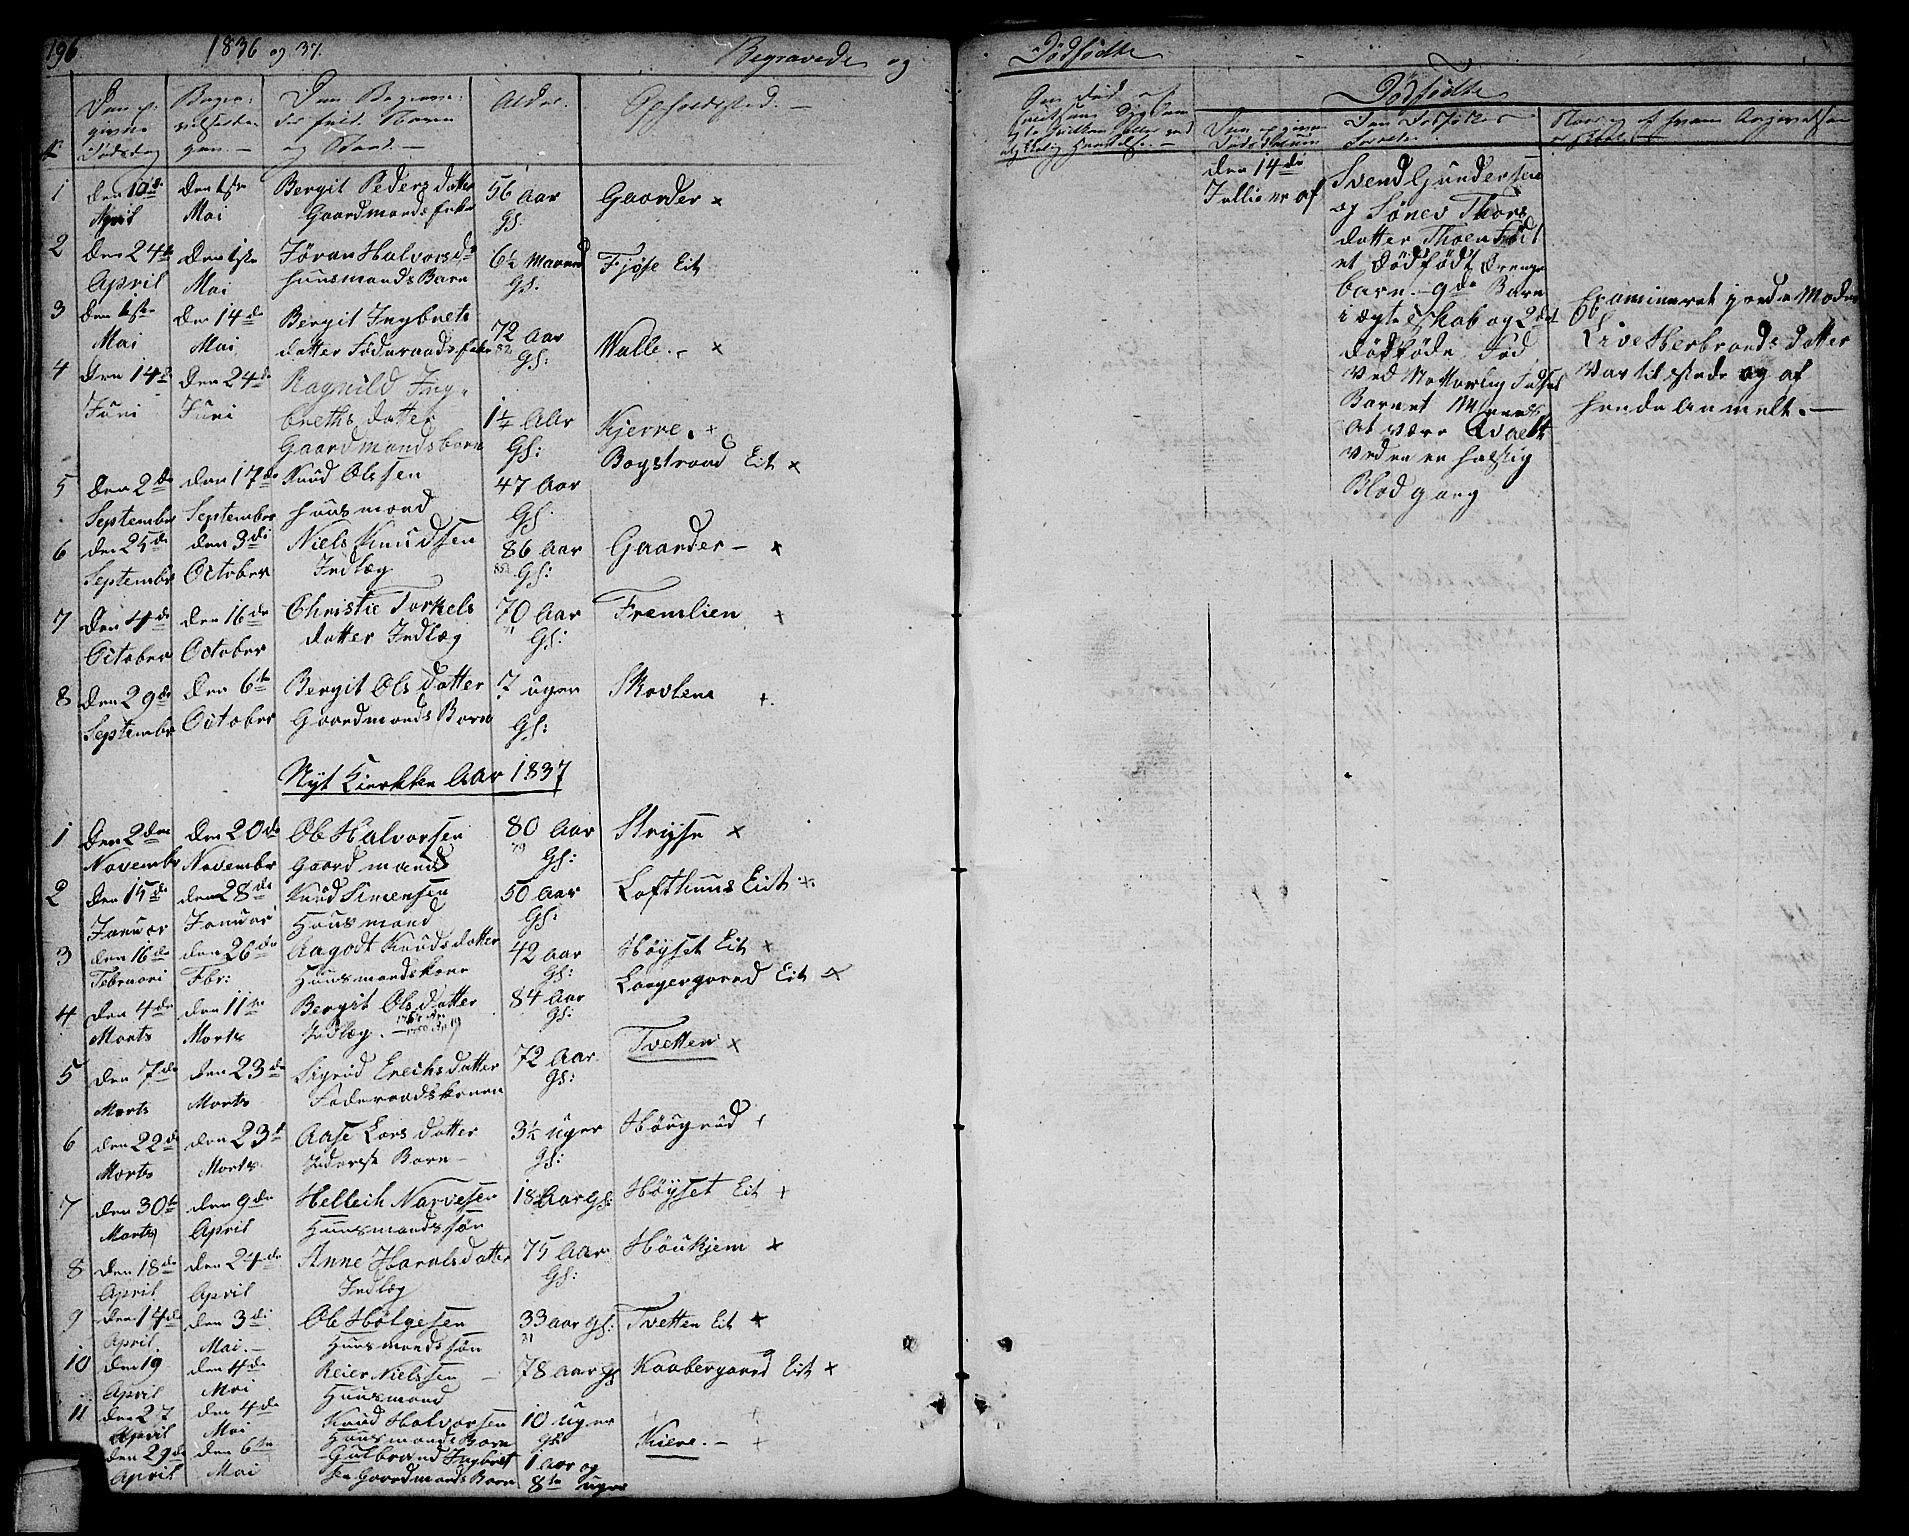 196 1836 og 37. Begravede og
№ Den op: givne Dødsdag
Begra: velsesda: gen. —
Den Begrave: des fulde Navn og Stand. —
Alder.
Opholdssted. —
1 den 10de April den 1ste Mai Bergit Pedersdatter Gaardmands 56 Aar Gl: Gaarder ×
2 den 24de April den 1ste Mai Jøran Halvorsd: Huusmands Barn 6½ Maaned Gl: Fjøse Eit
3 den 1ste Mai den 14de Mai Bergit Ingbrets datter Føderaads 72 Aar 82 Gl: Walle. ×
4 den 14de Juni den 24de Juni Ragnild Ing- breths datter Gaardmandsbarn 1½ Aar Gl: Kjerre. +
5 den 2de September den 17de September Knud Olssen Huusmand 47 Aar Gl: Bogstrand Eit ×
6 den 25de September den 3di October Niels Knudssen Indlæg 86 Aar Gl: Gaarder — ×
7 den 4de October den 16de October Christie Torkels datter Indlæg 70 Aar Gl: Fremlien +
8 den 29de September den 6te October Bergit Olsdatter Gaardmands Barn 7 uger Gl: Skovlene +
Nyt Kierkke Aar 1837
1 Den 2den November Den 20de November Ole Halvorsen Gaardmand 80 Aar 79 Gl: ×
2 den 15de Januar den 28de Januar Knud Simensen Huusmand 50 Aar Gl: Lofthuus Eit +
3 den 16de Februari den 26de Fbr: Aagodt Knudsdatter Huusmandskone 42 Aar Gl: Høyset Eit ×
4 den 4de Marts den 11te Marts Bergit Olsdatter Indlæg. 84 Aar Gl: Laagergaard Eit ×
5 den 7de Marts den 23de Marts Sigrid Erichsdatter Føderaadskonen 72 Aar Gl: Tvetten ×
6 den 22de Marts den 23de Marts Aase Larsdatter Inderst Barn — 3½ uger Gl: Hougrud +
7 den 30te Marts den 9de April Helleich Narvesen Huusmandssøn 18 Aar Gl: Høyset Eit +
8 den 18de April den 24de April Anne Haraldsdatter Indlæg 75 Aar Gl: Houkjem ×
9 den 14de April den 3di Mai. — Ole Holgesen Huusmandssøn 33 aar gl: 31 Tvetten Eit ×
10 den 19 April den 4de Mai Reier Nielssen — Huusmand 78 aar gl Kaabergaard Eit ×
11 den 27 April den 4de Mai Knud Halvorsen Huusmands Barn 10 uger Gl: +
den 29de April den 6te Mai Gulbrand Ingbret sen Gaardmands Barn 1 Aar og 8te uger Kiere. — +
Dødfødte
Dødfødte
Den opgivne Døds Datum
Den Dødfødtes Forældre.
den 14de Julii er af
Svend Gundersen
og Sønev Thors
datter Thoen Født
et Dødfødt Drenge
barn — 9de Barn
i ægteskab og 2det
dødføde. Fød
ved Nattarlig Fødsel
Barnet
At være Qvaelt
ved en en haftig
Blodgang
Examineret jordeModer
Live Herbrandsdatter
var til stede og af
hende anmelt. —